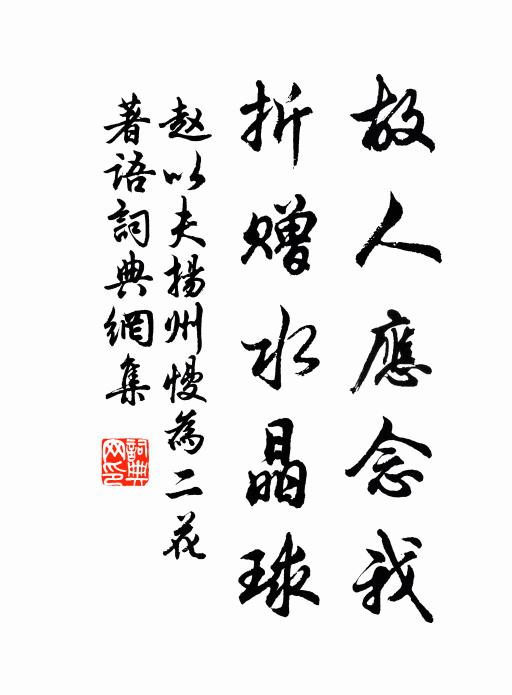 故人應念我
折贈水晶球
赵以夫揚州慢為二花
著語詞典網集
詞典
网印